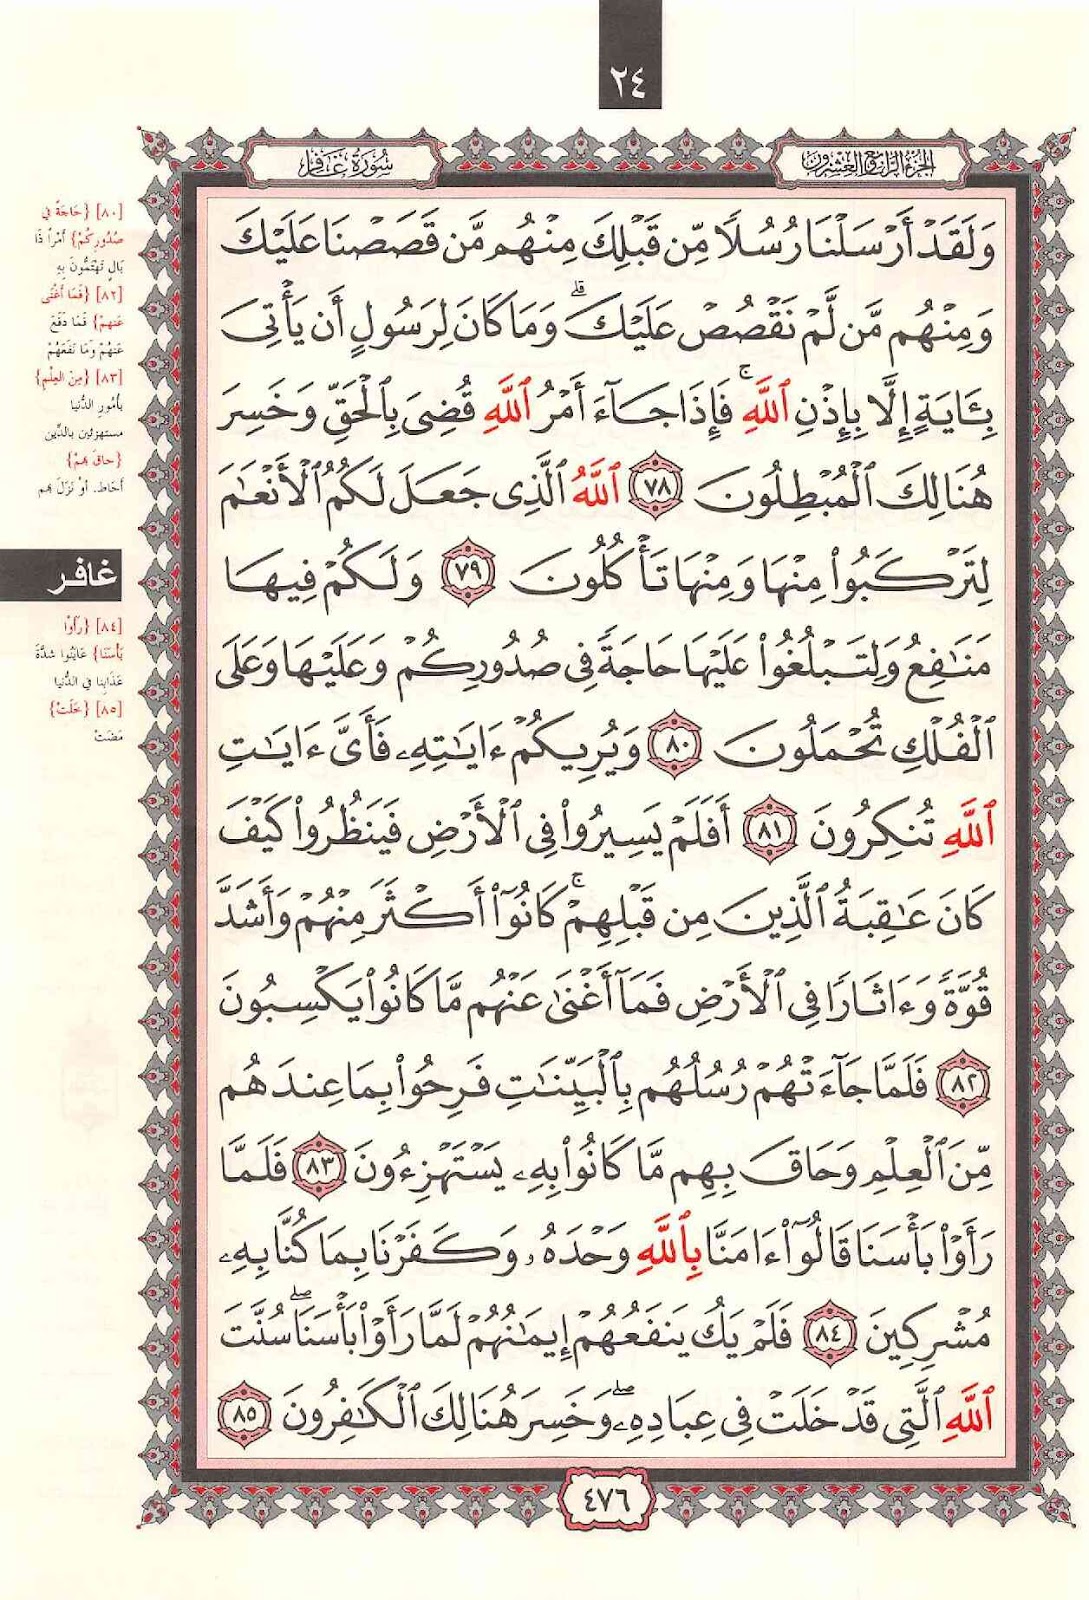 ٢٤
الجزء الرابع والعشرون
سورة غافر
وَلَقَدْ أَرْسَلْنَا رُسُلًا مِّن قَبْلِكَ مِنْهُم مَّن قَصَصْنَا عَلَيْكَ
وَمِنْهُم مَّن لَّمْ نَقْصُصْ عَلَيْكَ ۗ وَمَا كَانَ لِرَسُولٍ أَن يَأْتِىَ
بِـَٔايَةٍ إِلَّا بِإِذْنِ ٱللَّهِ ۚ فَإِذَا جَآءَ أَمْرُ ٱللَّهِ قُضِىَ بِٱلْحَقِّ وَخَسِرَ
هُنَالِكَ ٱلْمُبْطِلُونَ ٧٨ ٱللَّهُ ٱلَّذِى جَعَلَ لَكُمُ ٱلْأَنْعَٰمَ
لِتَرْكَبُوا۟ مِنْهَا وَمِنْهَا تَأْكُلُونَ ٧٩ وَلَكُمْ فِيهَا
مَنَٰفِعُ وَلِتَبْلُغُوا۟ عَلَيْهَا حَاجَةً فِى صُدُورِكُمْ وَعَلَيْهَا وَعَلَى
ٱلْفُلْكِ تُحْمَلُونَ ٨٠ وَيُرِيكُمْ ءَايَٰتِهِۦ فَأَىَّ ءَايَٰتِ
ٱللَّهِ تُنكِرُونَ ٨١ أَفَلَمْ يَسِيرُوا۟ فِى ٱلْأَرْضِ فَيَنظُرُوا۟ كَيْفَ
كَانَ عَٰقِبَةُ ٱلَّذِينَ مِن قَبْلِهِمْ ۚ كَانُوٓا۟ أَكْثَرَ مِنْهُمْ وَأَشَدَّ
قُوَّةً وَءَاثَارًا فِى ٱلْأَرْضِ فَمَآ أَغْنَىٰ عَنْهُم مَّا كَانُوا۟ يَكْسِبُونَ
٨٢ فَلَمَّا جَآءَتْهُمْ رُسُلُهُم بِٱلْبَيِّنَٰتِ فَرِحُوا۟ بِمَا عِندَهُم
مِّنَ ٱلْعِلْمِ وَحَاقَ بِهِم مَّا كَانُوا۟ بِهِۦ يَسْتَهْزِءُونَ ٨٣ فَلَمَّا
رَأَوْا۟ بَأْسَنَا قَالُوٓا۟ ءَامَنَّا بِٱللَّهِ وَحْدَهُۥ وَكَفَرْنَا بِمَا كُنَّا بِهِۦ
مُشْرِكِينَ ٨٤ فَلَمْ يَكُ يَنفَعُهُمْ إِيمَٰنُهُمْ لَمَّا رَأَوْا۟ بَأْسَنَا ۖ سُنَّتَ
ٱللَّهِ ٱلَّتِى قَدْ خَلَتْ فِى عِبَادِهِۦ ۖ وَخَسِرَ هُنَالِكَ ٱلْكَٰفِرُونَ ٨٥
[٨٠] {حَاجَةً فِي
صُدُورِكُمْ} أَمْراً ذَا
بَالٍ تَهْتَمُّونَ بِهِ
[٨٢] {فَمَا أَغْنَى
عَنهمْ} فَمَا دَفَعَ
عَنهُمْ وَمَا نَفَعَهُمْ
[٨٣] {مِنَ العِلْمِ}
بِأُمُورِ الدُّنيا
مستهزئين بالدِّين
{حاقَ بهمْ}
أَحَاط. أَوْ نَزَلَ بهم
غافر
[٨٤] {رَأَوْا
بَأْسَنَا} عَايَنُوا شِدَّةَ
عَذَابِنا في الدُّنيا
[٨٥] {خَلَتْ}
مَضَتْ
٤٧٦